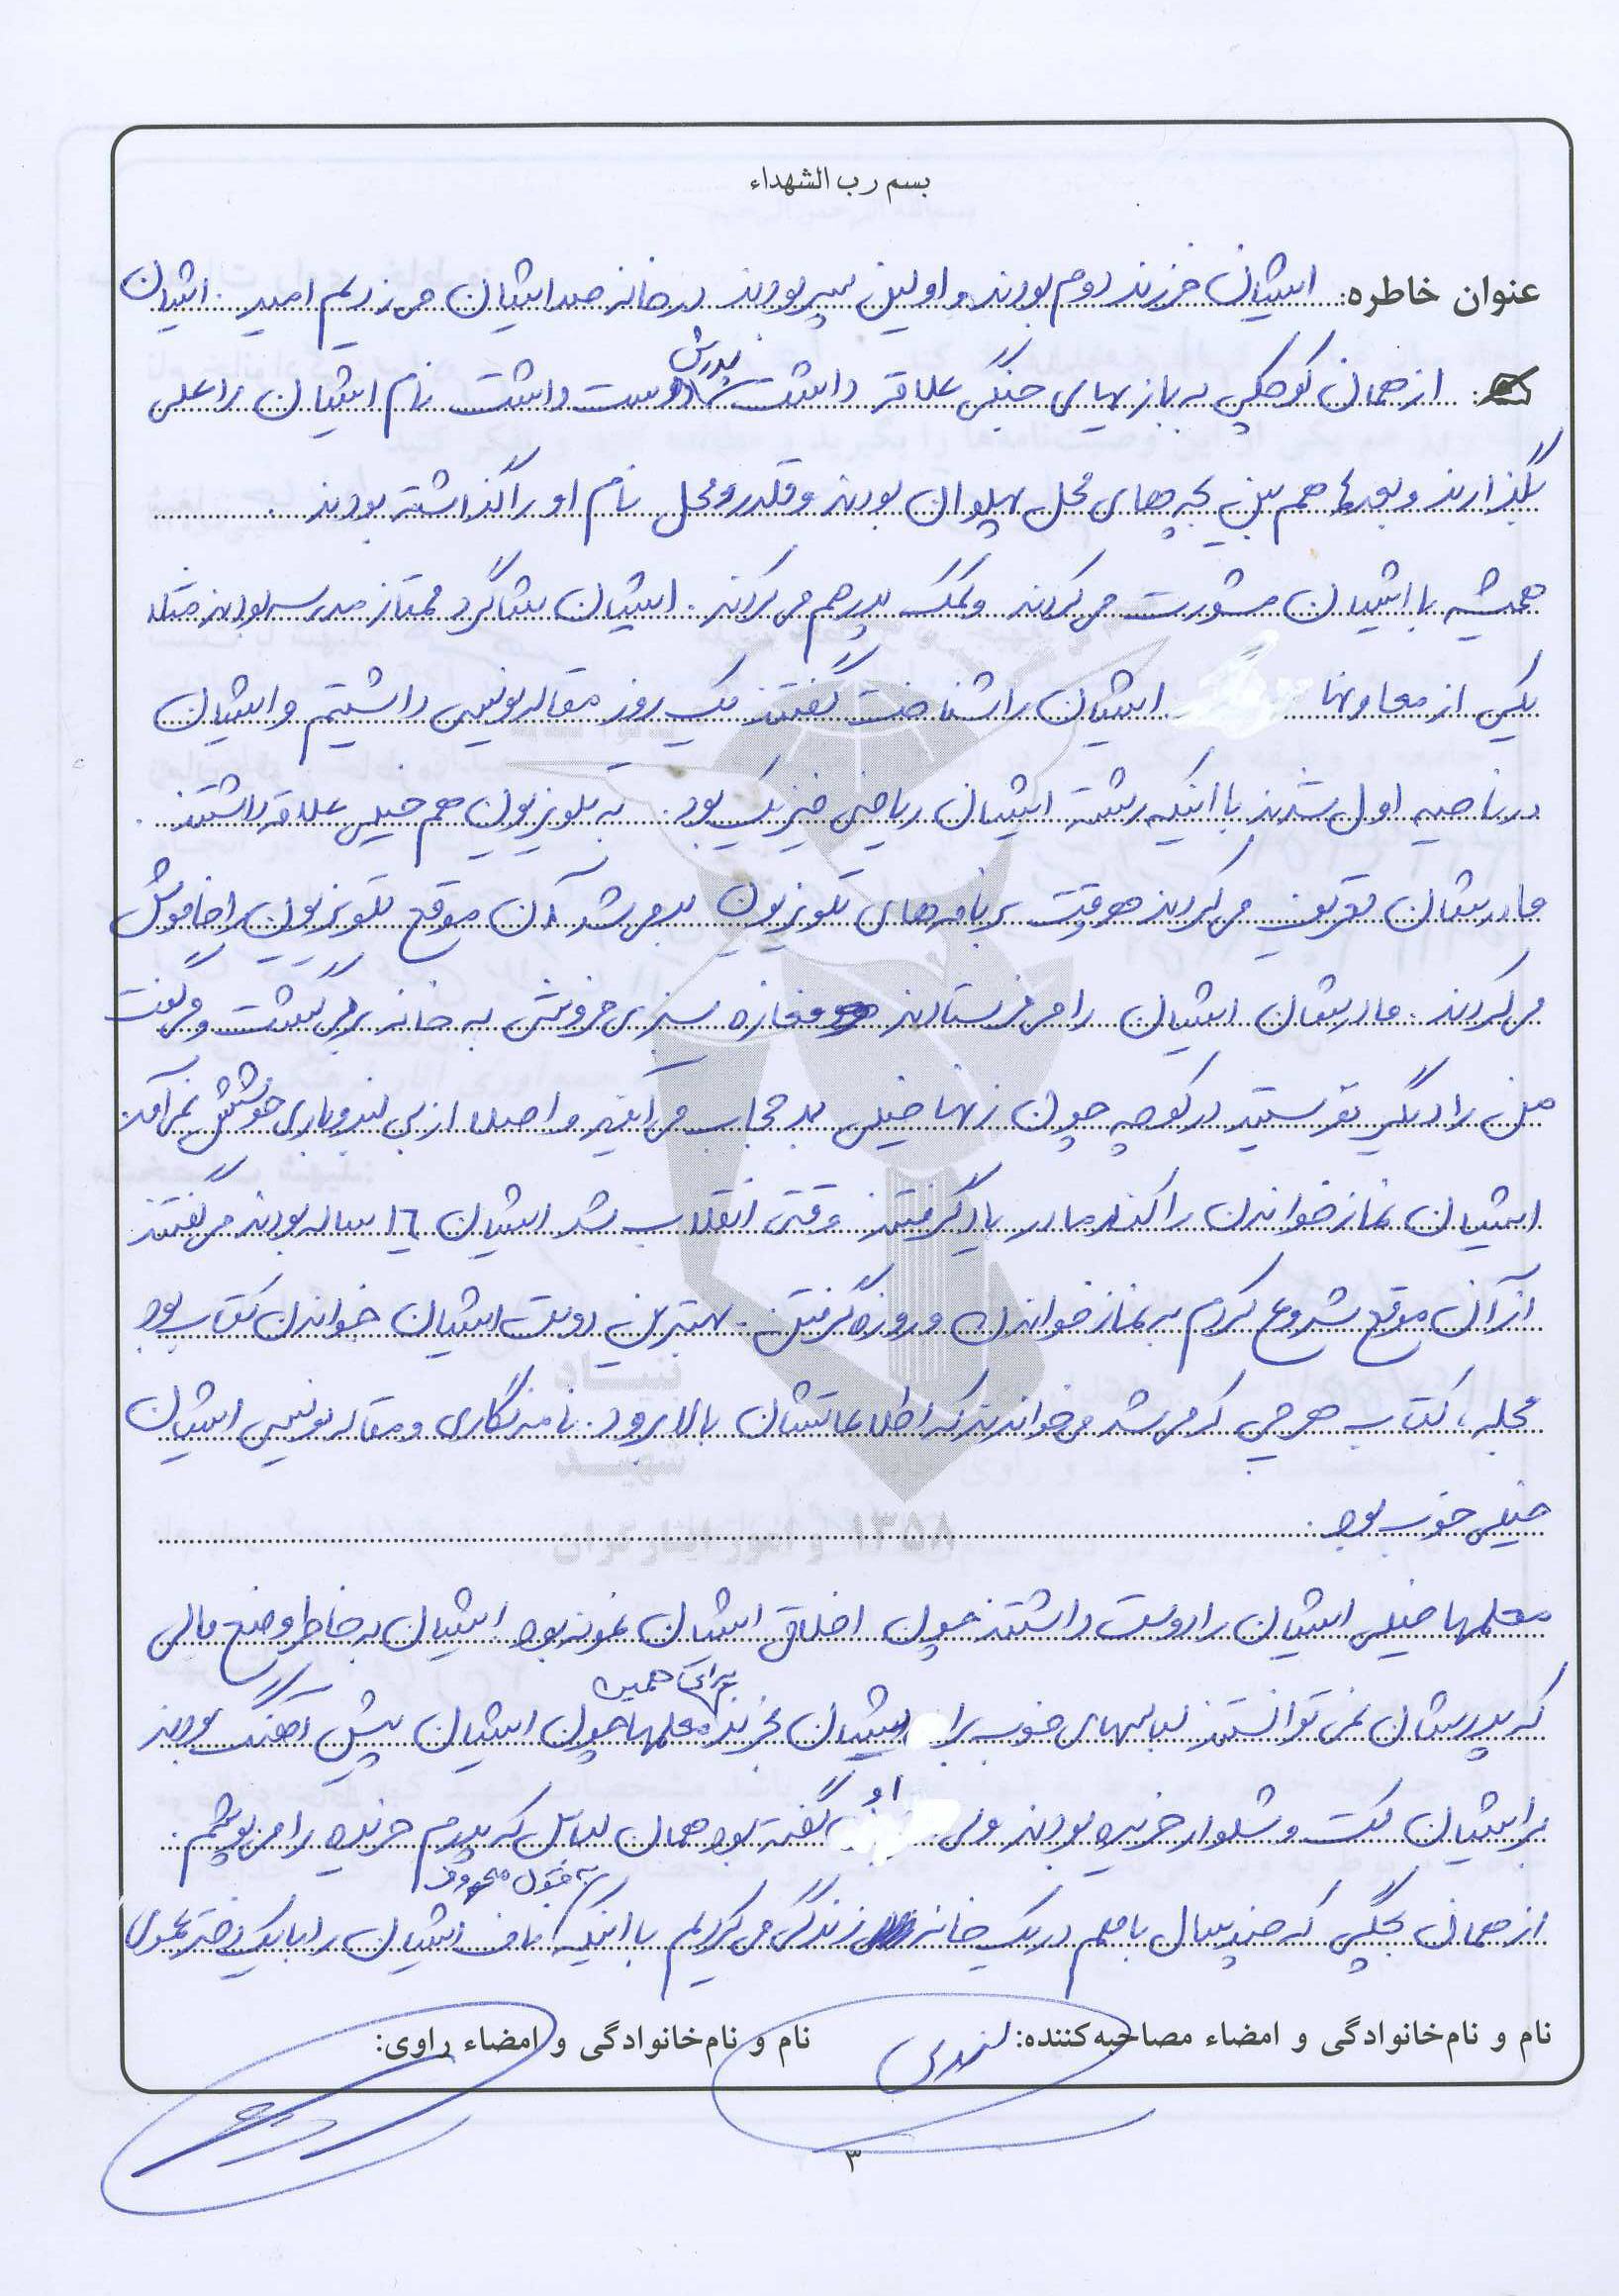 بسم رب الشهداء
عنوان خاطره: ایشان فرزند دوم بودند و اولین پسر بودند در خانه صدا ایشان می زدیم امیر. ایشان
از همان کوچکی به بازیهای جنگی علاقه داشت پدرش دوست داشت نام ایشان را علی
بگذارند و بعدها هم بین بچه های محل پهلوان بودند و قلدر محل نام او را گذاشته بودند.
همیشه با ایشان مشورت می کردند و کمک پدر هم می کردند. ایشان شاگرد ممتاز مدرسه بودند مثلا
یکی از معاونها ایشان را شناخت گفتند یک روز مقاله نویسی داشتیم و ایشان
در ناحیه اول شدند با اینکه رشته ایشان ریاضی فیزیک بود. به تلویزیون هم خیلی علاقه داشتند.
مادرشان تعریف می کردند هر وقت برنامه های تلویزیون بد می شد آن موقع تلویزیون را خاموش
می کردند. مادرشان ایشان را می فرستادند مغازه سبزی فروشی به خانه بر می گشت و می گفت
من را دیگر نفرستید در کوچه چون زنها خیلی بد حجاب می آیند و اصلا از بی بندوباری خوشش نمی آمد.
ایشان نماز خواندن را از مادر یاد گرفتند وقتی انقلاب شد ایشان ١٦ ساله بودند می گفتند
از آن موقع شروع کردم به نماز خواندن و روزه گرفتن. بهترین دوست ایشان خواندن کتاب بود
مجله، کتاب هر چی که می شد می خواندند که اطلاعاتشان بالا برود. نامه نگاری و مقاله نویسی ایشان
خیلی خوب بود.
معلمها خیلی ایشان را دوست داشتند چون اخلاق ایشان نمونه بود. ایشان به خاطر وضع مالی
که پدرشان نمی توانستند لباسهای خوب برا ایشان بخرند برای همین معلمها چون ایشان پیش آهنگ بودند
برا ایشان کت و شلوار خریده بودند ولی او گفته بود همان لباس که پدرم خریده را می پوشم.
از همان بچگی که چند سال با هم در یک خانه زندگی می کردیم با اینکه به قول معروف ناف ایشان را با یک دختر عموی
نام و نام‌خانوادگی و امضاء مصاحبه‌کننده:
نام و نام‌خانوادگی و امضاء راوی:
٣
بنیاد
شهید
و امور ایثارگران
۱۳۵۸